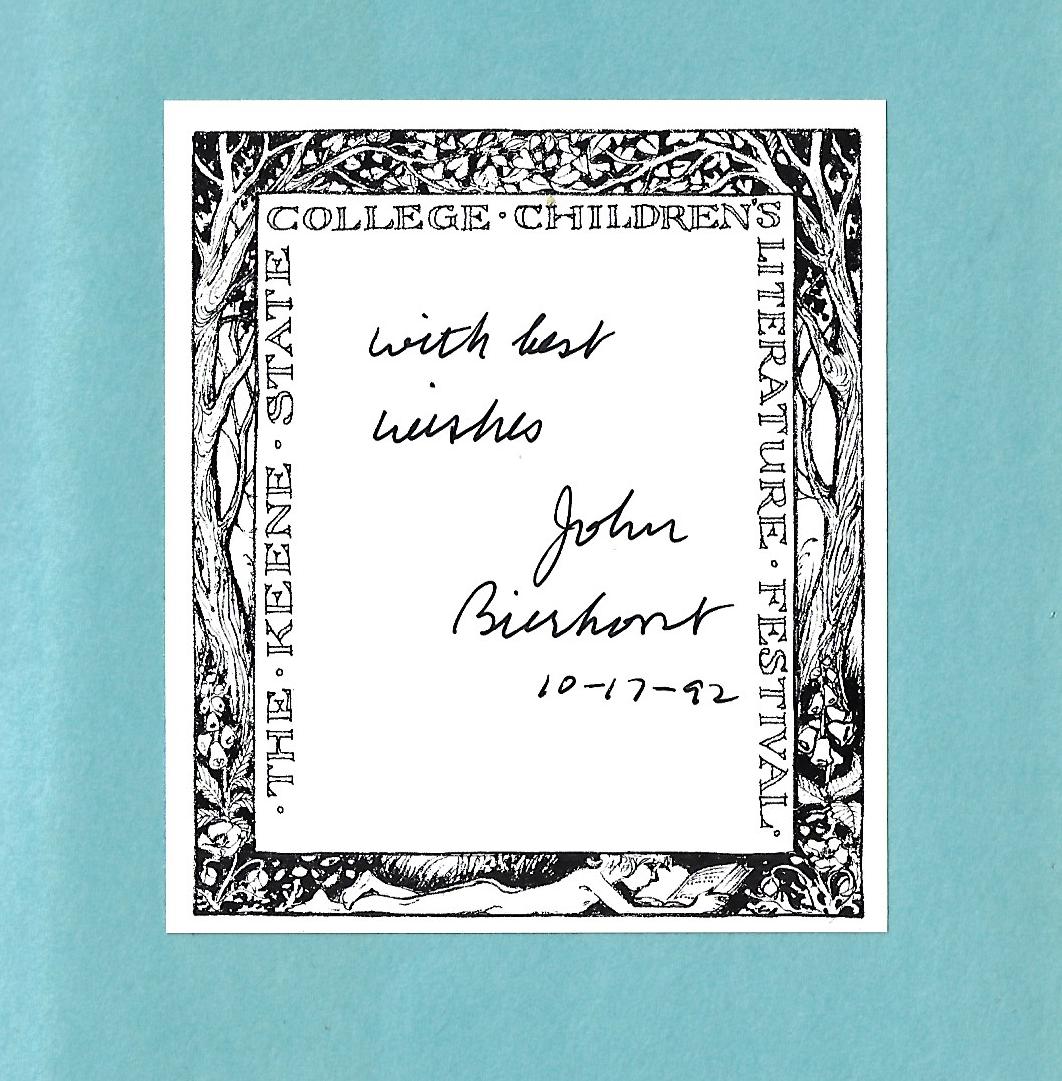 · THE · KEENE · STATE
COLLEGE · CHILDREN'S
LITERATURE · FESTIVAL ·
with best
wishes
John
Bierhorst
10-17-92